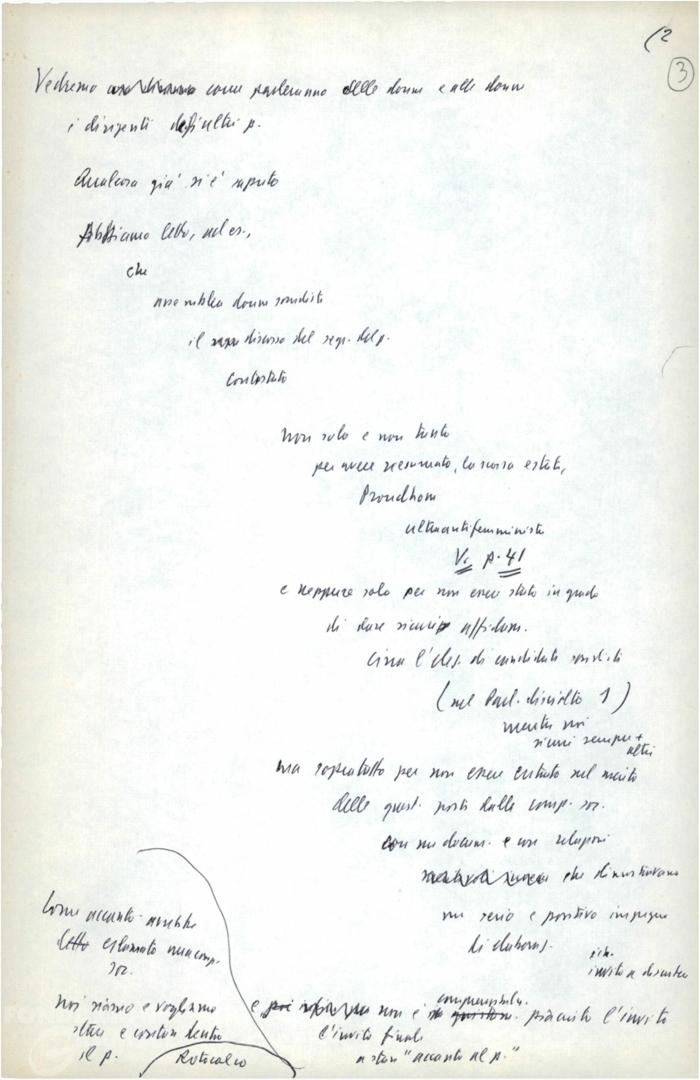 (2
3
Vedremo come parleranno delle donne e alle donne
i dirigenti degli altri p.
Qualcosa già si è saputo
Abbiamo letto, ad es.,
che
assemblea donne socialiste
il discorso del segr. del p.
contestato
non solo e non tanto
per avere riesumato, la scorsa estate,
Proudhom
ultraantifemminista
V. p. 41
e neppure solo per non essere stato in grado
di dare sicuri affidam.
circa l'elez. di candidate socialiste
(nel Parl. disciolto 1)
mentre noi
siamo sempre +
altri
ma sopratutto per non essere entrato nel merito
delle quest. poste dalle comp. soc.
con un docum. e con relazioni
che dimostravano
un seria e positivo impegno
di elaboraz.
invito a discutere
Come accanto avrebbe
detto esclamato una comp.
soc.
noi siamo e vogliamo
stare e contare dentro
il p.
Rotocalco
e non è piaciuto l'invito
l'invito finale
a stare "accanto al p."